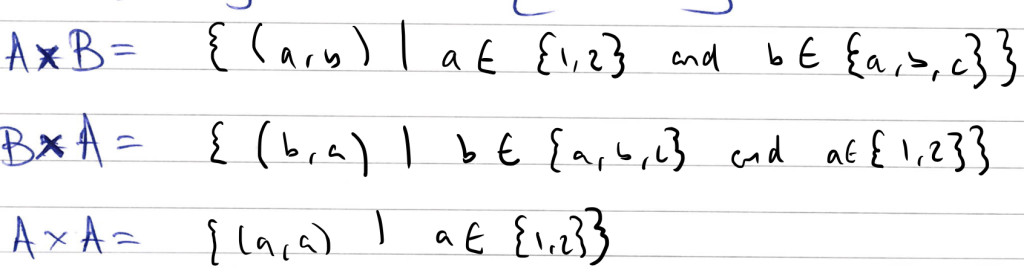 A×B = { (a,b) | a ∈ {1,2} and b ∈ {a,b,c}}
B×A = { (b,a) | b ∈ {a,b,c} and a∈{1,2}}
A×A = {(a,a) | a ∈ {1,2}}